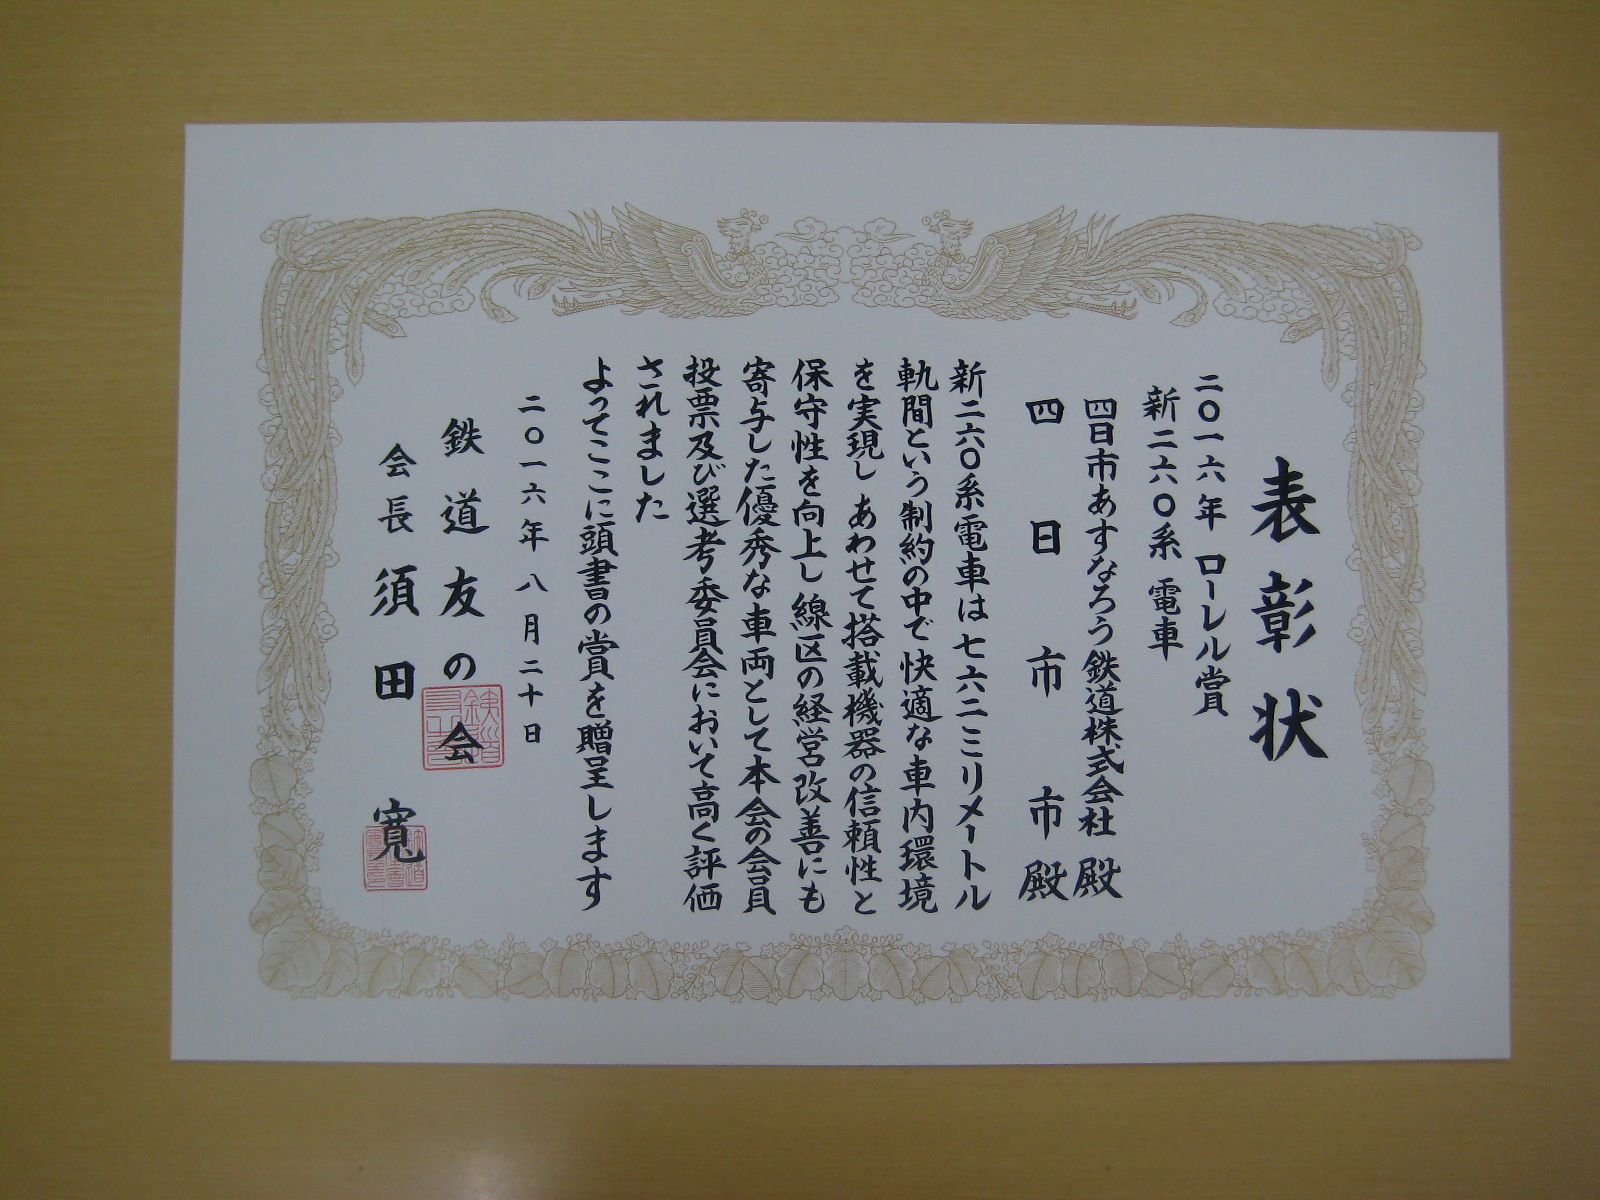 表彰状
二〇一六年 ローレル賞
新二六〇系 電車
四日市あすなろう鉄道株式会社 殿
四日市市 殿
新二六〇系電車は七六二ミリメートル
軌間という制約の中で快適な車内環境
を実現し あわせて搭載機器の信頼性と
保守性を向上し 線区の経営改善にも
寄与した優秀な車両として本会の会員
投票及び選考委員会において高く評価
されました
よってここに頭書の賞を贈呈します
二〇一六年 八月二十日
鉄道友の会
会長 須田 寬